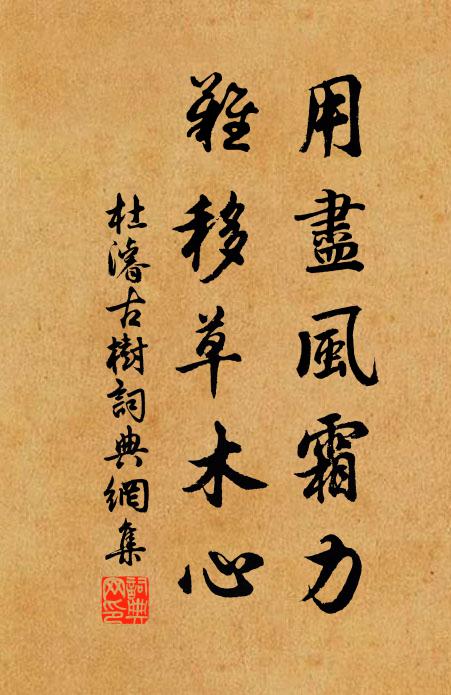 用盡風霜力
難移草木心
杜濬古樹詞典網集
詞典
网印